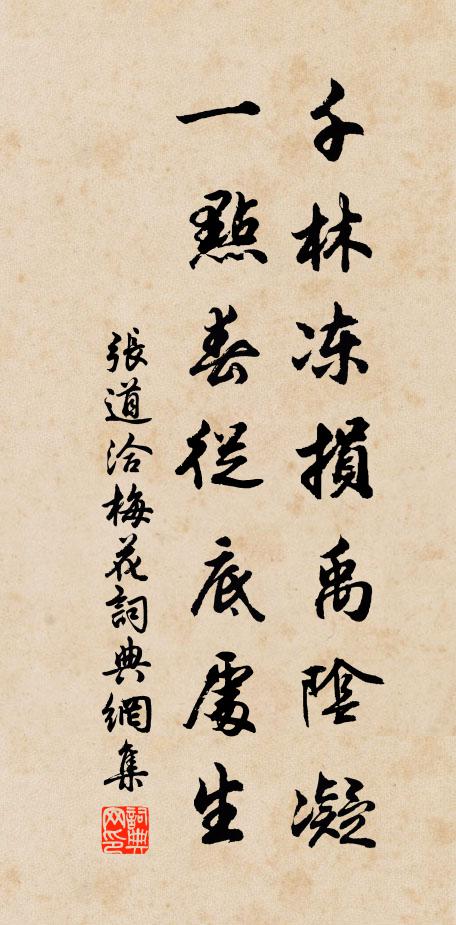 千林冻損禹陰凝
一點春從底處生
張道洽梅花詞典網集
詞典网印